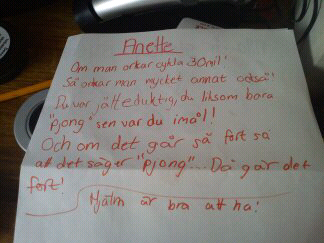 Anette
Om man orkar cykla 30mil!
Så orkar man mycket annat också!
Du var jätteduktig, du liksom bara
"Pjong" sen var du i mål!
Och om det går så fort så
att det säger "Pjong"... Då går det
fort!
Hjälm är bra att ha!